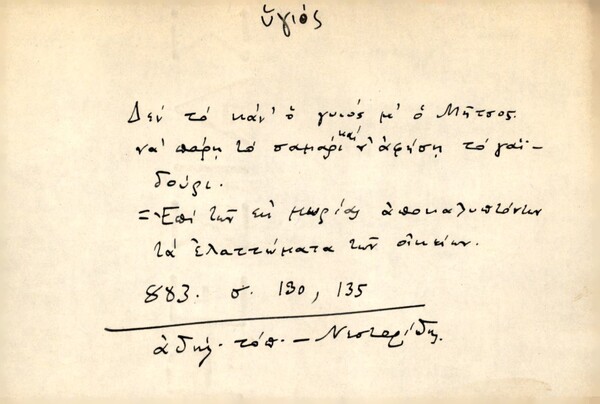 ὑγιός
Δεν τό κάν' ὁ γυιός μ' ὁ Μῆτσος
νά πάρῃ τό σαμάρι καί ν' ἀφήσῃ τό γαϊ-
δούρι.
= Ἐπί τῶν ἐκ μωρίας ἀποκαλυπτόντων
τά ἐλαττώματα τῶν οἰκείων.
883. σ. 130, 135
ἀδήλ. τόπ. – Νεστορίδης.